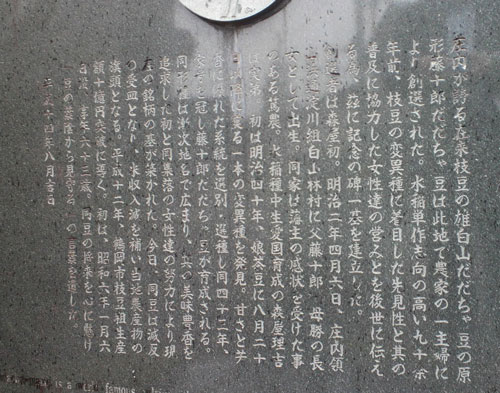 庄内が誇る在来枝豆の雄白山だだちゃ豆の原
形藤十郎だだちゃ豆は此地で農家の一主婦に
より創選された。水稲単作志向の高い九十余
年前、枝豆の変異種に着目した先見性と其の
普及に協力した女性達の営みとを後世に伝え
る為、茲に記念の碑一基を建立した。
は森 初。明治二年四月六日、庄内領
淀川組白山林村に父藤十郎 母勝の長
女として出生。同家は藩主の感状を受けた事
のある篤農。水稲種中生愛国育成の森屋理吉
初は明治四十年、娘茶豆に八月二十
る一本の変異種を発見。甘さと芳
香に優れた系統を選別・選種し同四十三年、
を冠し藤十郎だだちゃ豆が育成される。
同 は漸次地名で広まり、の美味豊香を
追求した初と同集落の女性達の努力により現
在の銘柄の基が築かれた。今日、同豆は減反
の受皿となり、米収入減を補い当地農産物の
旗頭となる。平成十二年、鶴岡市枝豆粗生産
額十億円突破に導く。初は、昭和六年一月六
日没、享年六十三歳。同豆の将来を心に懸け
豆の葉陰から見守る の言葉を遺した。
平成十四年八月吉日
famous